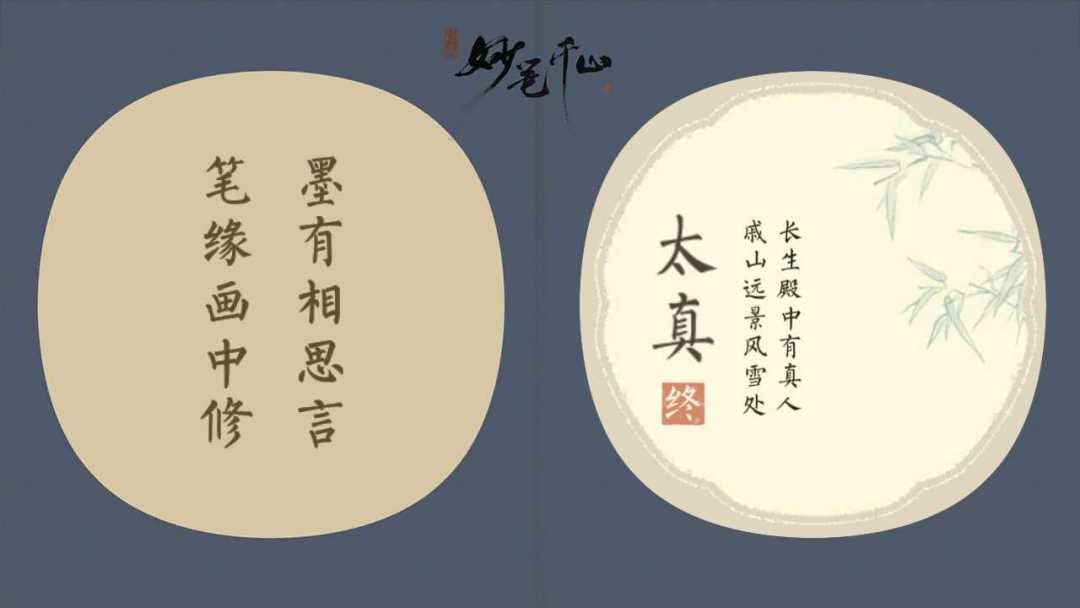 妙笔千山
墨有相思言
笔缘画中修
长生殿中有真人
戚山远景风雪处
太真
终